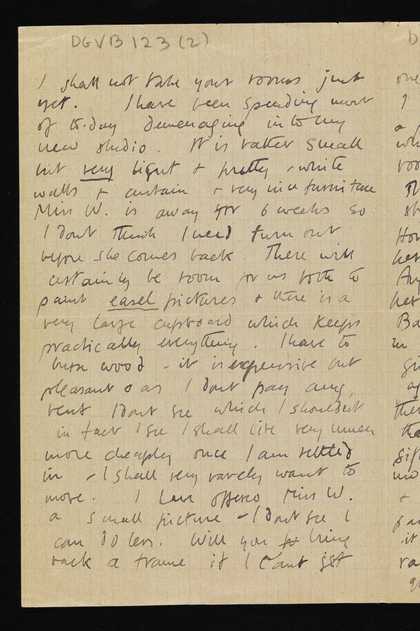 DGVB 123 (2)
I shall not take your rooms just
yet. I have been spending most
of to-day demenaging in to my
new studio. It is rather small
but very light & pretty & white
walls & curtain & very nice furniture
Miss W. is away for 6 weeks so
I dont think I need turn out
before she comes back There will
certainly be room for us both to
paint easel pictures & there is a
very large cupboard which keeps
practically everything. I have to
burn wood - it is expensive but
pleasant & as I dont pay any
rent I dont see which I shouldnt
in fact I see I shall live very much
more cheaply once I am settled
in - I shall very rarely want to
move. I have offered Miss W.
a small picture - I dont see I
can do less. Will you bring
back a frame if I cant get